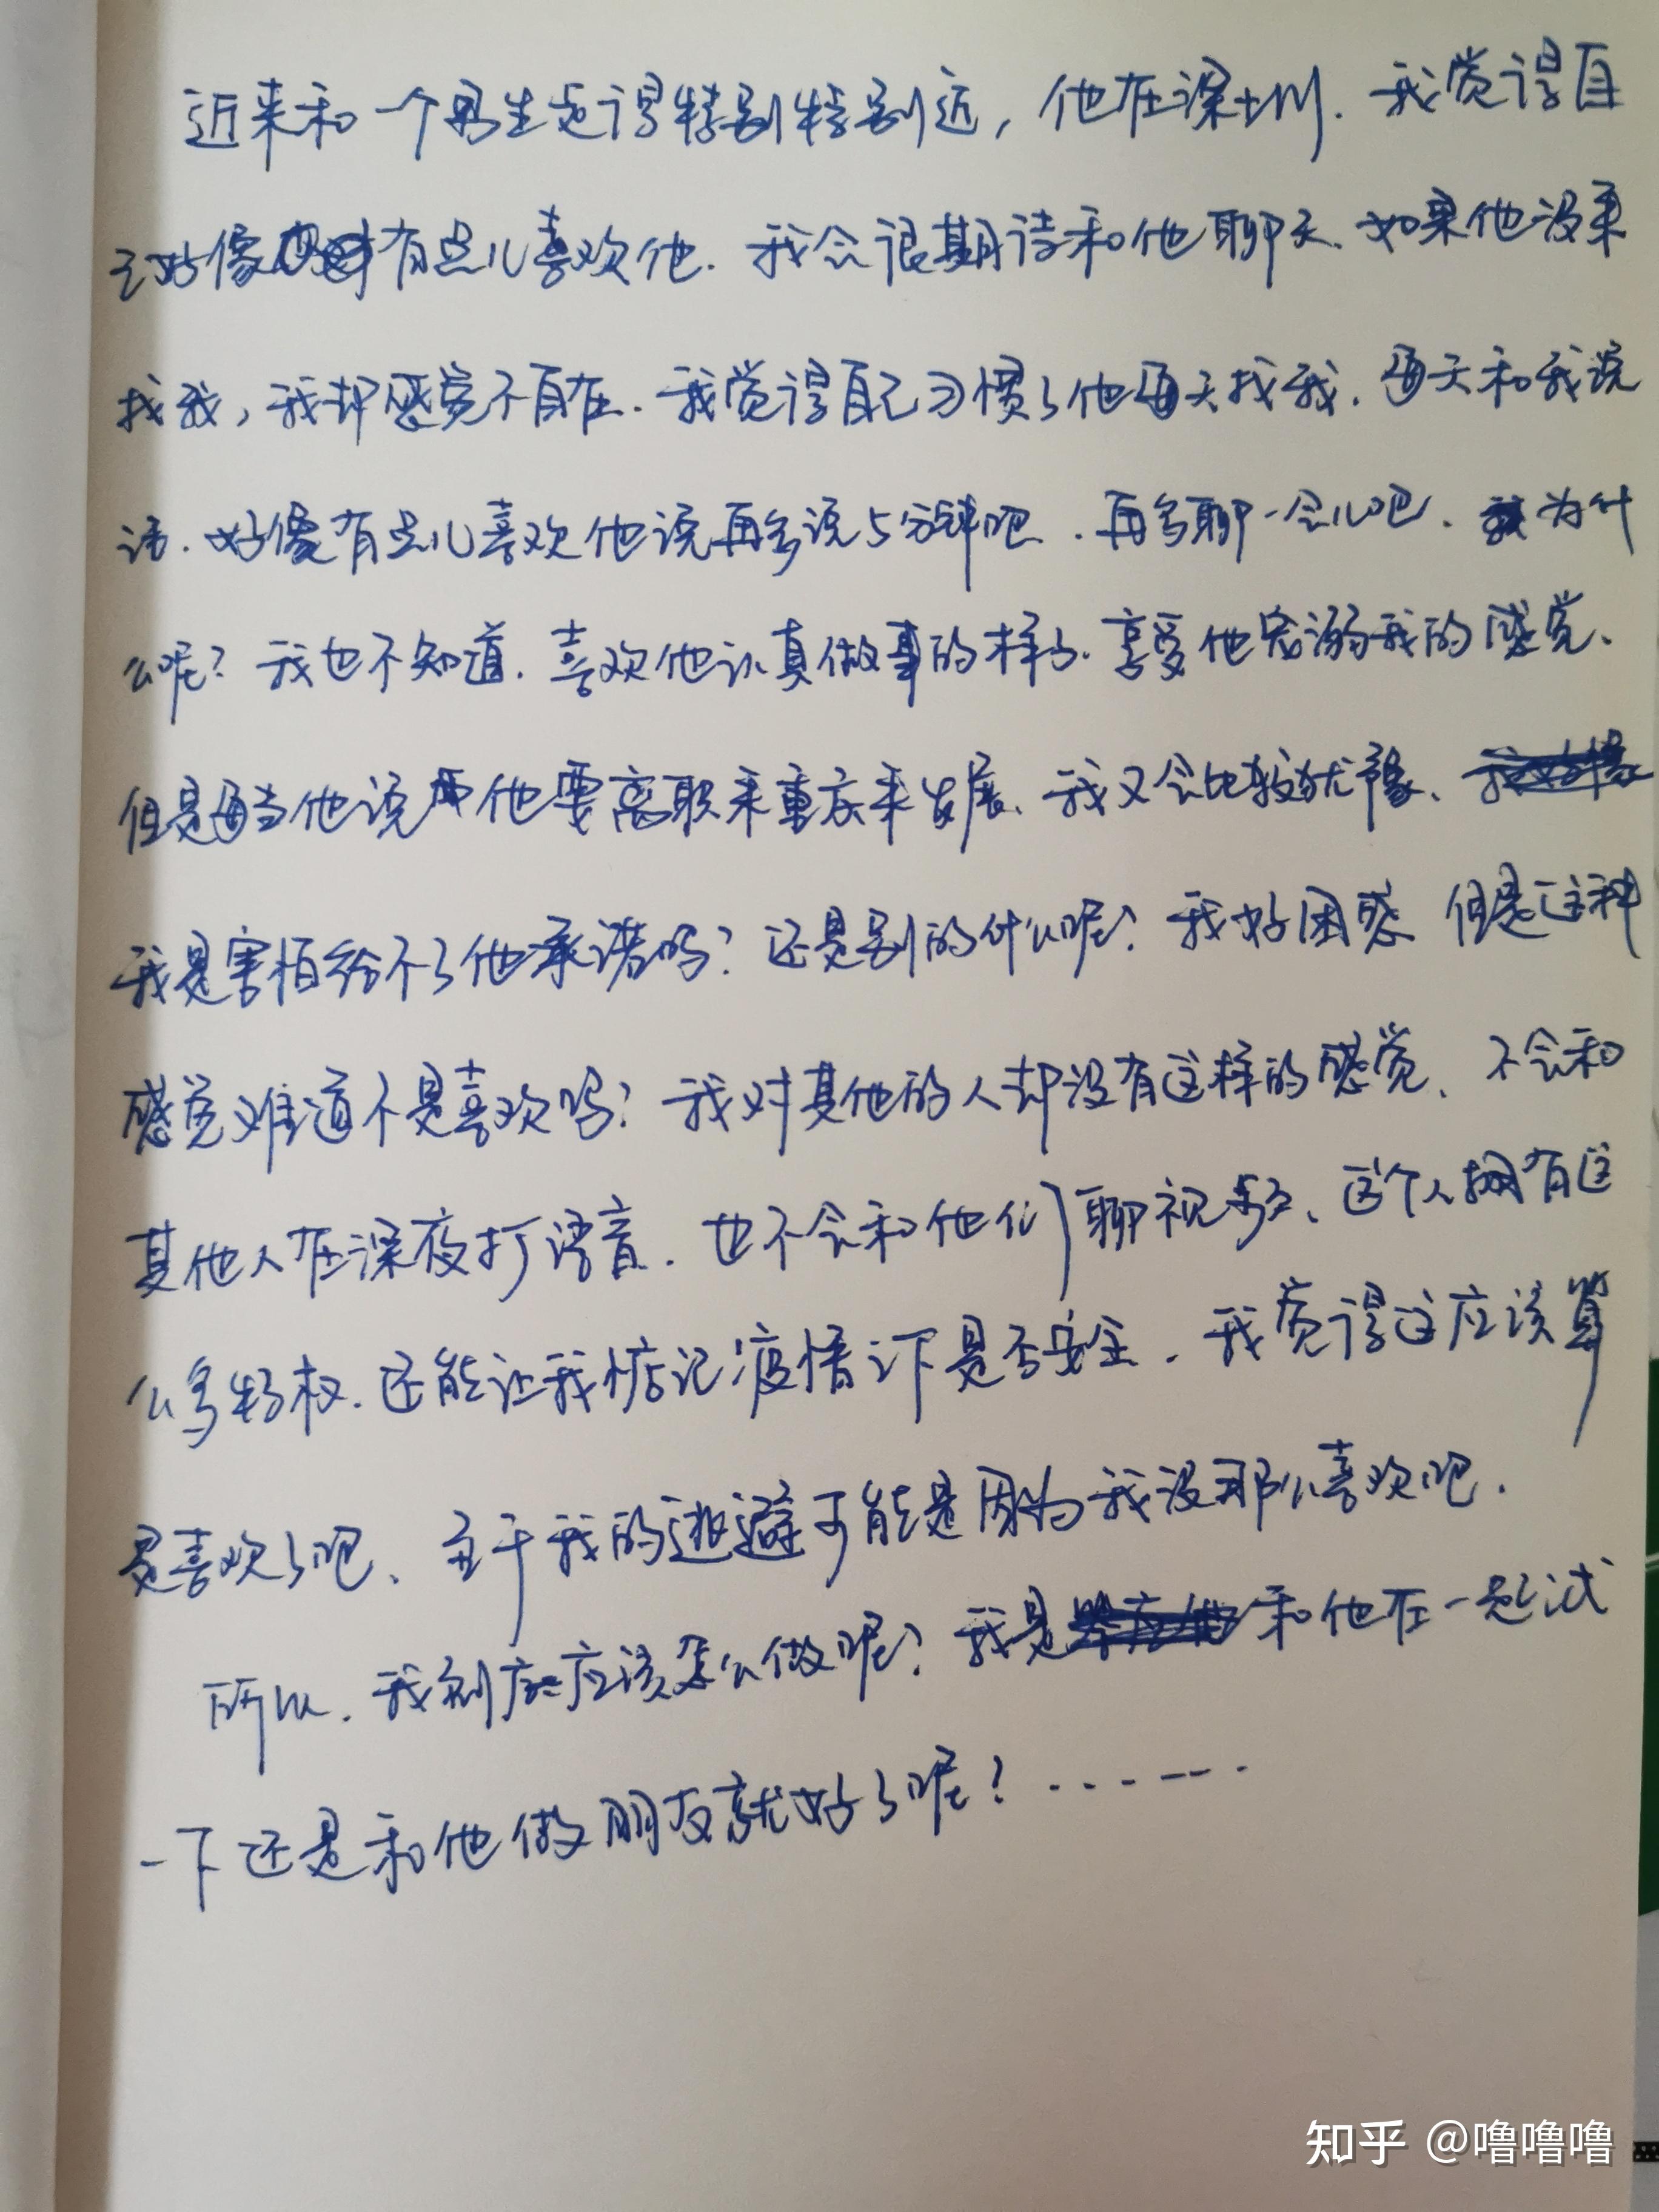 近来和一个男生走得特别特别近，他在深圳．我觉得自
己好像有点儿喜欢他．我会很期待和他聊天、如果他没来
找我，我却感觉不自在．我觉得自己习惯了他每天找我．每天和我说
话．好像有点儿喜欢他说再多说5分钟吧．再多聊一会儿吧．为什
么呢？我也不知道．喜欢他认真做事的样子．享受他宠溺我的感觉、
但是每当他说他要离职来重庆来发展、我又会比较犹豫、
我是害怕给不了他承诺吗？还是别的什么呢？我好困惑 但是这种
感觉难道不是喜欢吗？我对其他的人却没有这样的感觉、不会和
其他人在深夜打语音．也不会和他们聊视频、这个人拥有这
么多特权．还能让我惦记疫情下是否安全．我觉得这应该算
是喜欢了吧、至于我的逃避可能是因为我没那么喜欢吧．
所以．我到底应该怎么做呢？我是和他在一起试
一下还是和他做朋友就好了呢？．．．－－－．
知乎 @噜噜噜